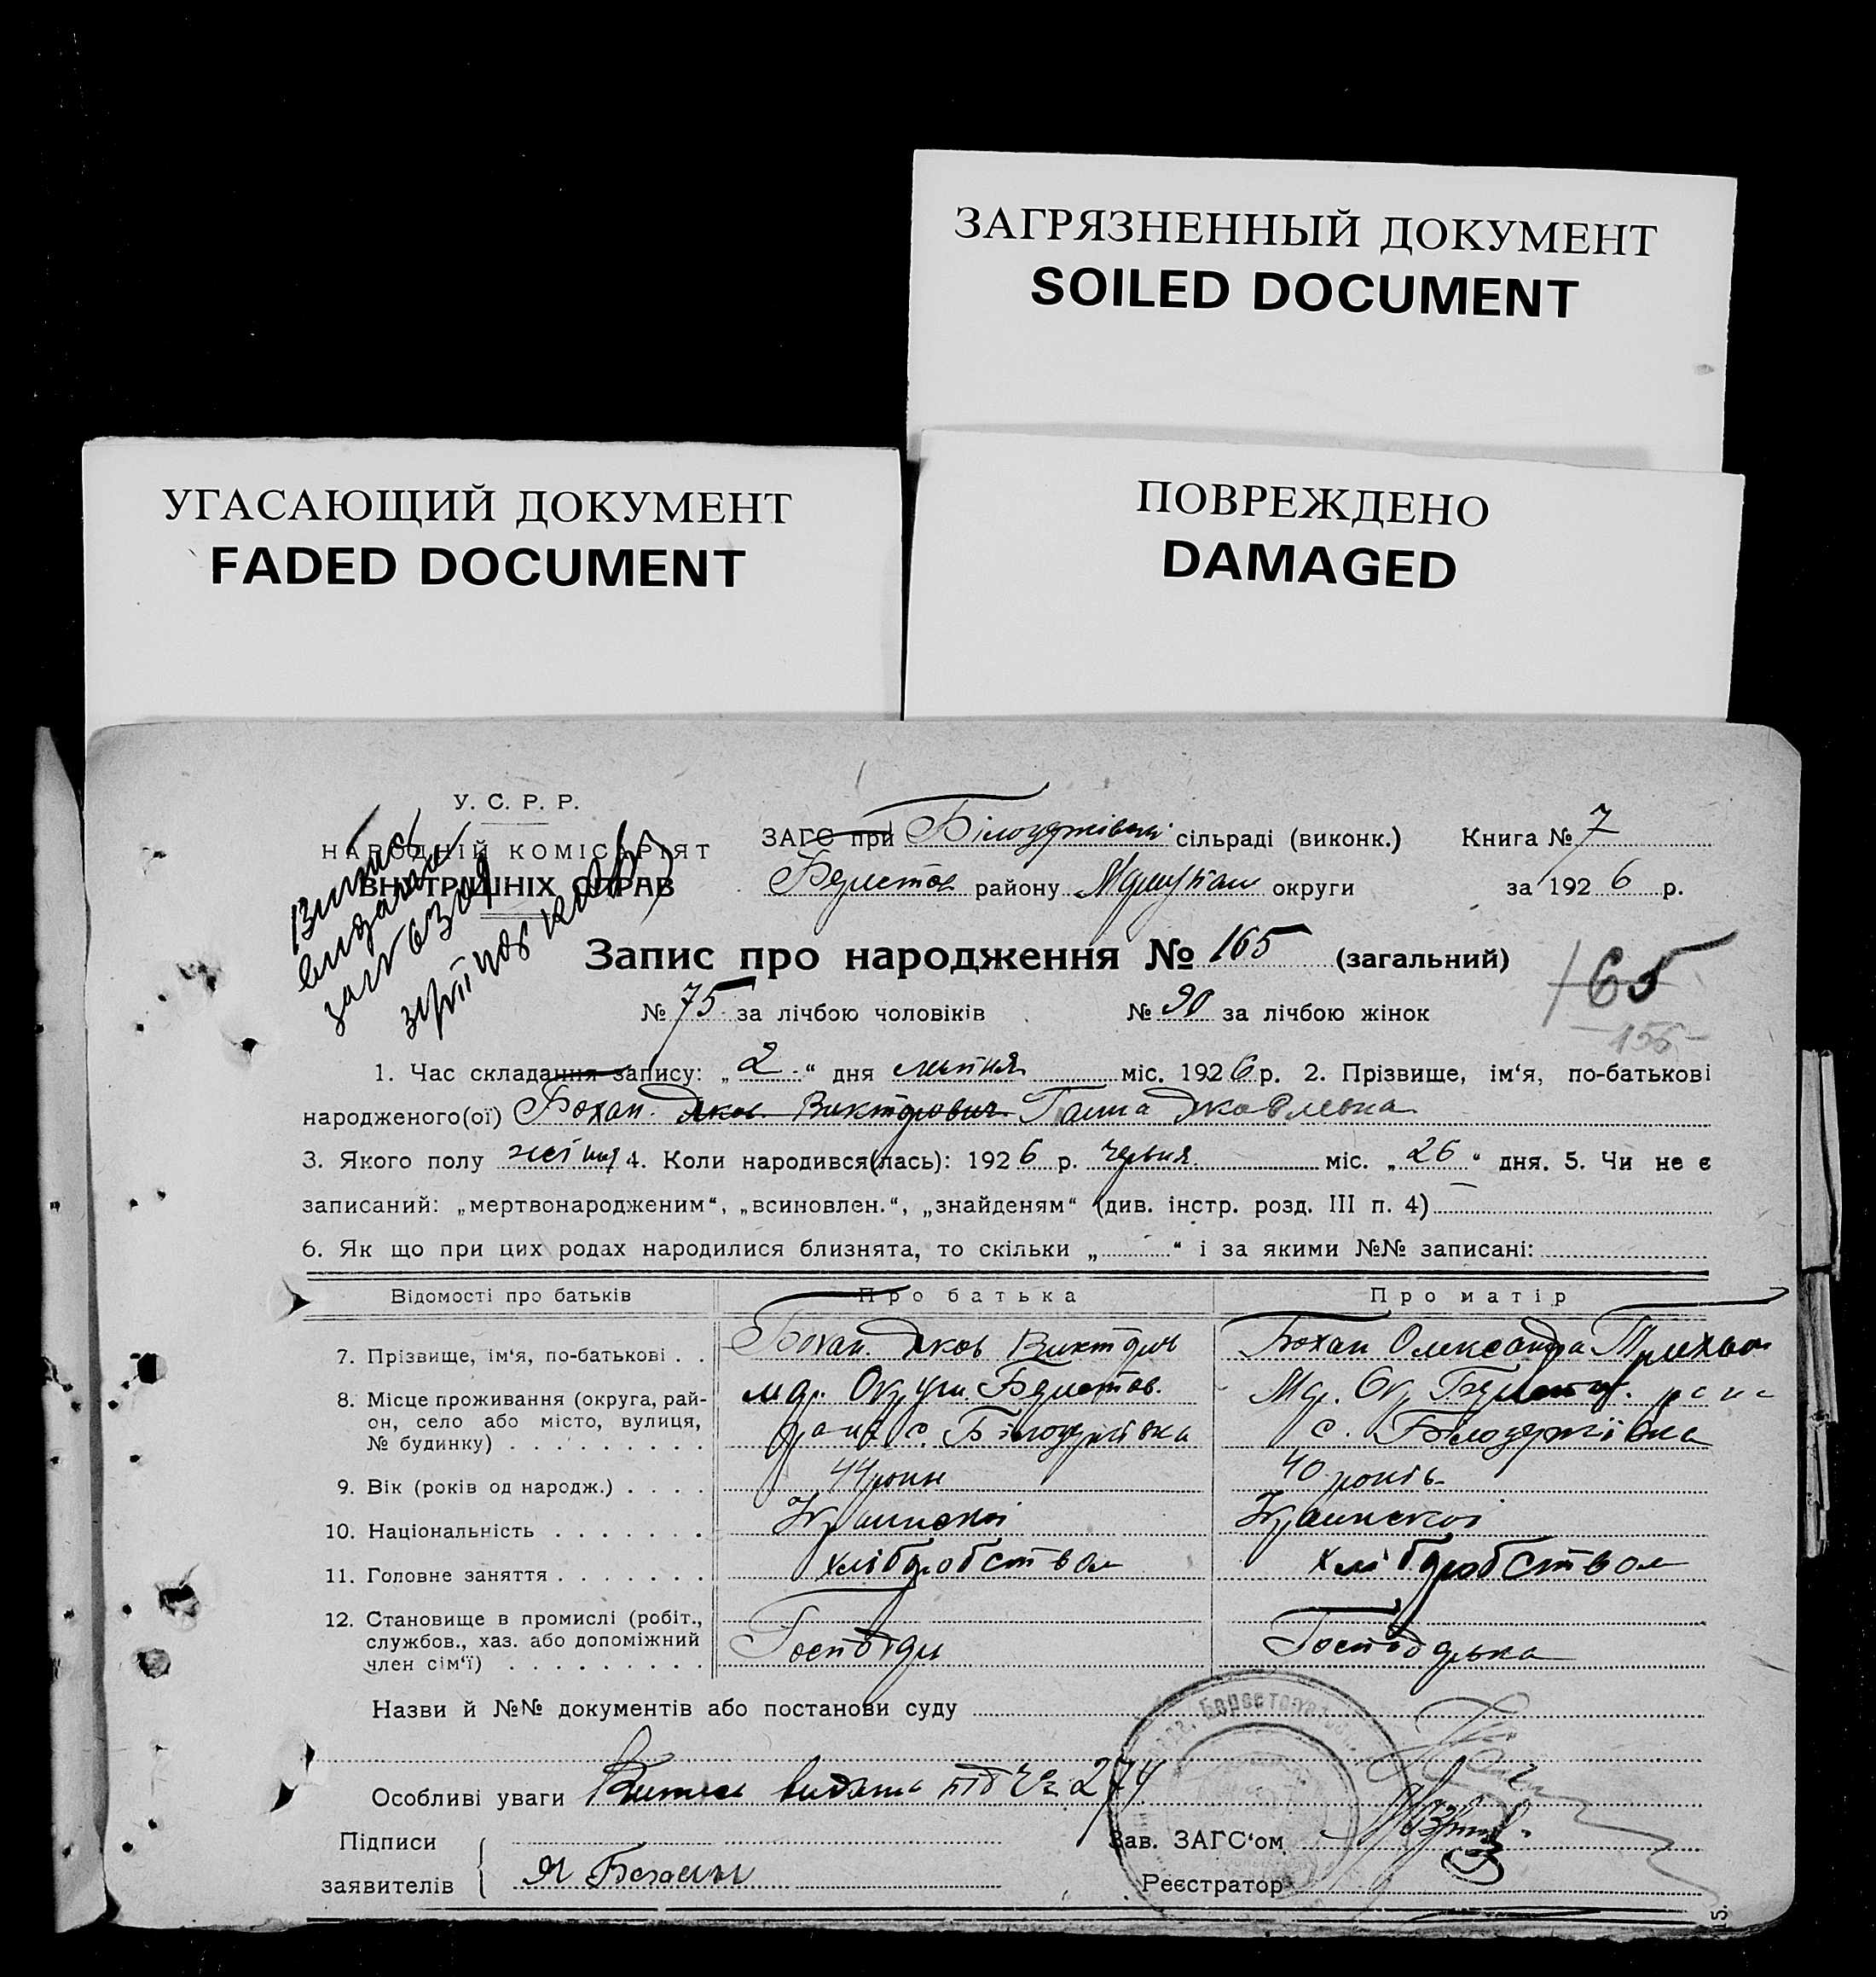 ЗАГРЯЗНЕННЫЙ ДОКУМЕНТ
SOILED DOCUMENT
УГАСАЮЩИЙ ДОКУМЕНТ
FADED DOCUMENT
ПОВРЕЖДЕНО
DAMAGED
У. С. Р. Р.
НАРОДНІЙ КОМІСАРІЯТ
ВНУТРІШНІХ СПРАВ
ЗАГС при сільраді (виконк.) Книга № 7
Берестов району округи за 1926 р.
Запис про народження № 165 (загальний)
165
№ 75 за лічбою чоловіків № 90 за лічбою жінок
155
1. Час складання запису: „2“ дня липня міс. 1926 р. 2. Прізвище, ім‘я, по-батькові
народженого(ої) Бохан Яков Викторович Ганна Яковлевна
3. Якого полу 4. Коли народився(лась): 1926 р. червня міс. „26“ дня. 5. Чи не є
записаний: „мертвонародженим“, „всиновлен.“, „знайденям“ (див. інстр. розд. III п. 4)
6. Як що при цих родах народилися близнята, то скільки „ “ і за якими №№ записані:
Відомості про батьків Про батька Про матір
7. Прізвище, ім‘я, по-батькові . . Бохан Яков Виктором Бохан Олександра
8. Місце проживання (округа, рай-
он, село або місто, вулиця,
№ будинку) . . . . . . . . . с.
9. Вік (років од народж.) . . . . 44 роки 40 років
10. Національність . . . . . . .
11. Головне заняття . . . . . . . хліборобством хліборобством
12. Становище в промислі (робіт.,
службов., хаз. або допоміжний
член сім‘ї) . . . . . . . . . Господар Господарька
Назви й №№ документів або постанови суду
Особливі уваги видана під № 274
Підписи
заявителів Я Бохан
Зав. ЗАГС‘ом
Реєстратор
15.